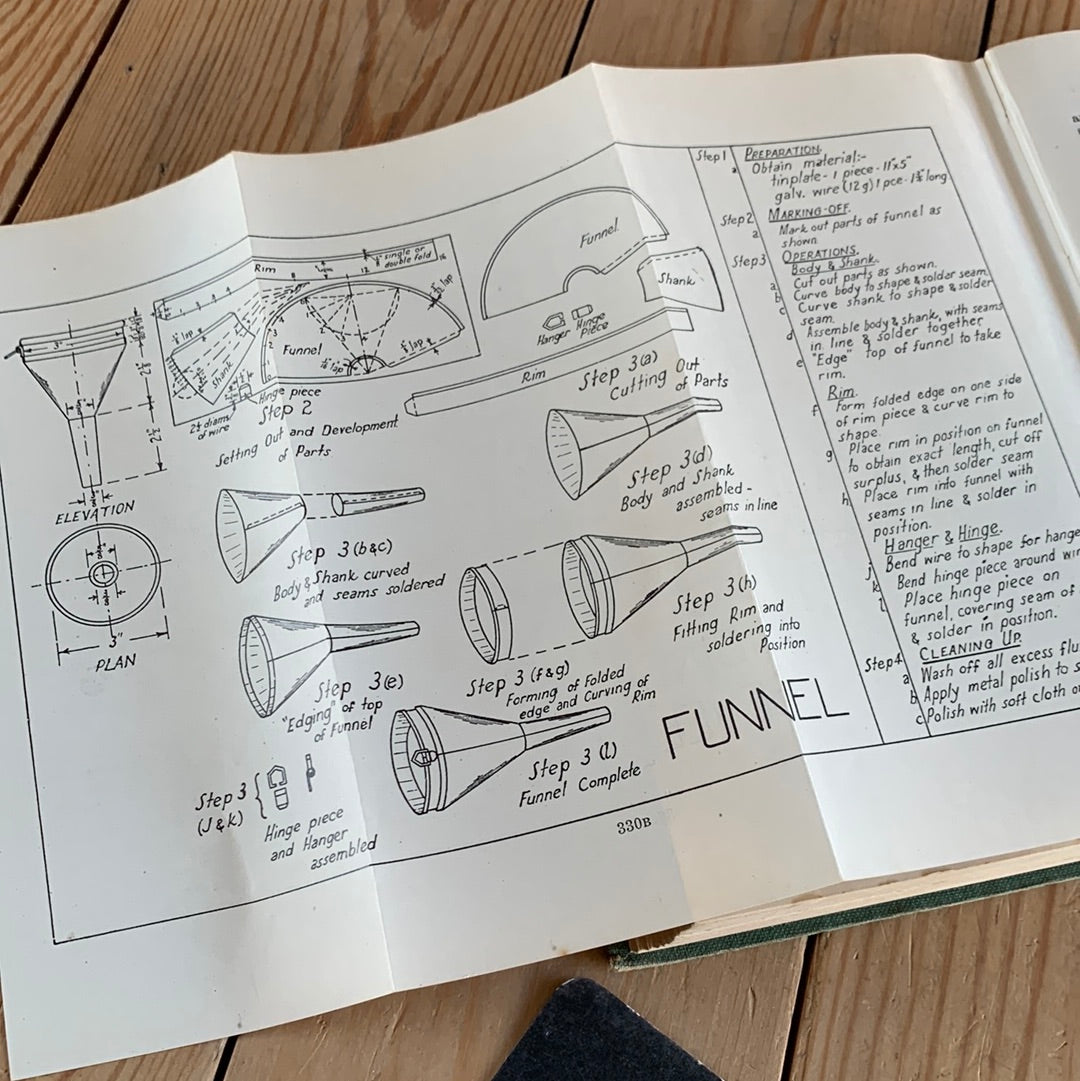 Step 1
PREPARATION.
a Obtain material:-
tinplate - 1 piece - 11"x5"
galv. wire (12g) 1 pce - 1¾" long
Step 2
MARKING-OFF.
a Mark out parts of funnel as
shown
Step 3
OPERATIONS.
Body & Shank.
a Cut out parts as shown.
b Curve body to shape & solder seam.
c Curve shank to shape & solder
seam.
d Assemble body & shank, with seams
in line & solder together
e "Edge" top of funnel to take
rim.
Rim.
f Form folded edge on one side
of rim piece & curve rim to
shape.
g Place rim in position on funnel
to obtain exact length, cut off
surplus, & then solder seam
h Place rim into funnel with
seams in line & solder in
position.
Hanger & Hinge.
j Bend wire to shape for hange
k Bend hinge piece around wir
l Place hinge piece on
funnel, covering seam of
& solder in position.
Step 4
CLEANING UP.
a Wash off all excess flu
b Apply metal polish to s
c Polish with soft cloth o
Rim
single or
double fold
12
16
Funnel
Shank
lap
lap
lap
Hinge piece
diam
of wire
Step 2
Setting Out and Development
of Parts
Funnel
Shank
Hanger
Hinge
Piece
Rim
Step 3(a)
Cutting Out
of Parts
3"
ELEVATION
3"
PLAN
Step 3(b&c)
Body & Shank curved
and seams soldered
Step 3(d)
Body and Shank
assembled -
seams in line
Step 3(e)
"Edging" of top
of Funnel
Step 3(f&g)
Forming of Folded
edge and Curving of
Rim
Step 3(h)
Fitting Rim and
soldering into
Position
Step 3
(J&k)
Hinge piece
and Hanger
assembled
Step 3(l)
Funnel Complete
FUNNEL
330B